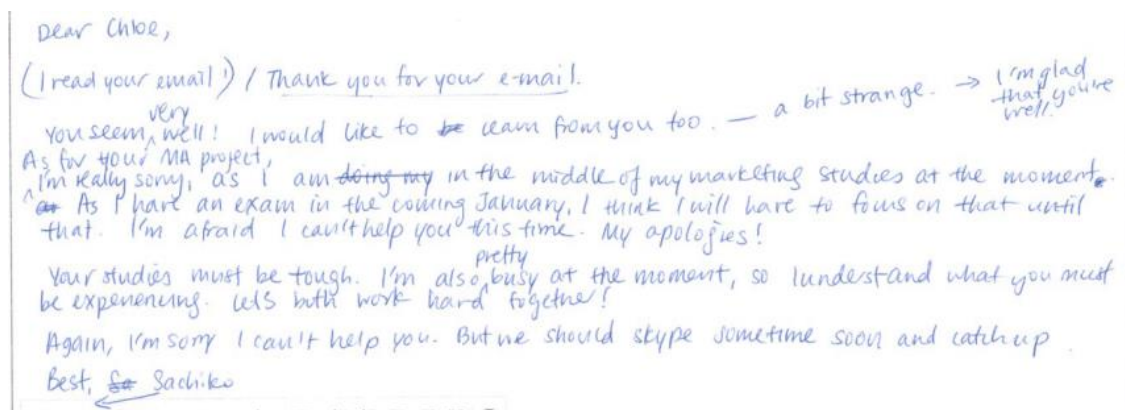 Dear Chloe,
(I read your email!) / Thank you for your e-mail.
You seem very well! I would like to be learn from you too. — a bit strange. → I'm glad that you're well.
As for your MA project,
I'm really sorry, as I am doing my in the middle of my marketing studies at the moment.
As I have an exam in the coming January, I think I will have to focus on that until
that. I'm afraid I can't help you this time. My apologies!
Your studies must be tough. I'm also pretty busy at the moment, so I understand what you must
be experiencing. Let's both work hard together!
Again, I'm sorry I can't help you. But we should skype sometime soon and catch up.
Best, Sa Sachiko